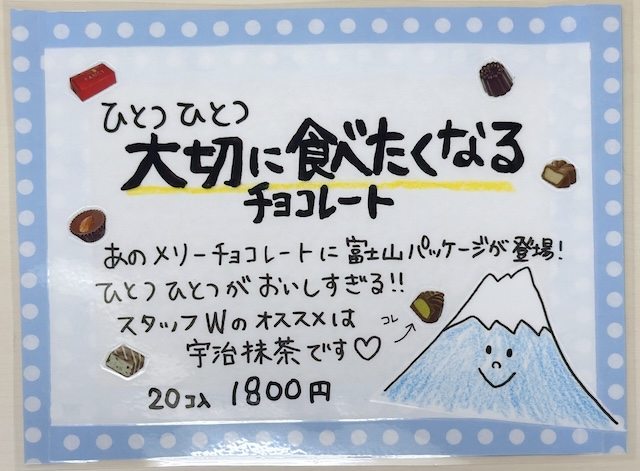 ひとつひとつ
大切に食べたくなる
チョコレート
あのメリーチョコレートに富士山パッケージが登場!
ひとつひとつがおいしすぎる!!
スタッフWのオススメは
コレ
宇治抹茶です♡
20コ入 1800円